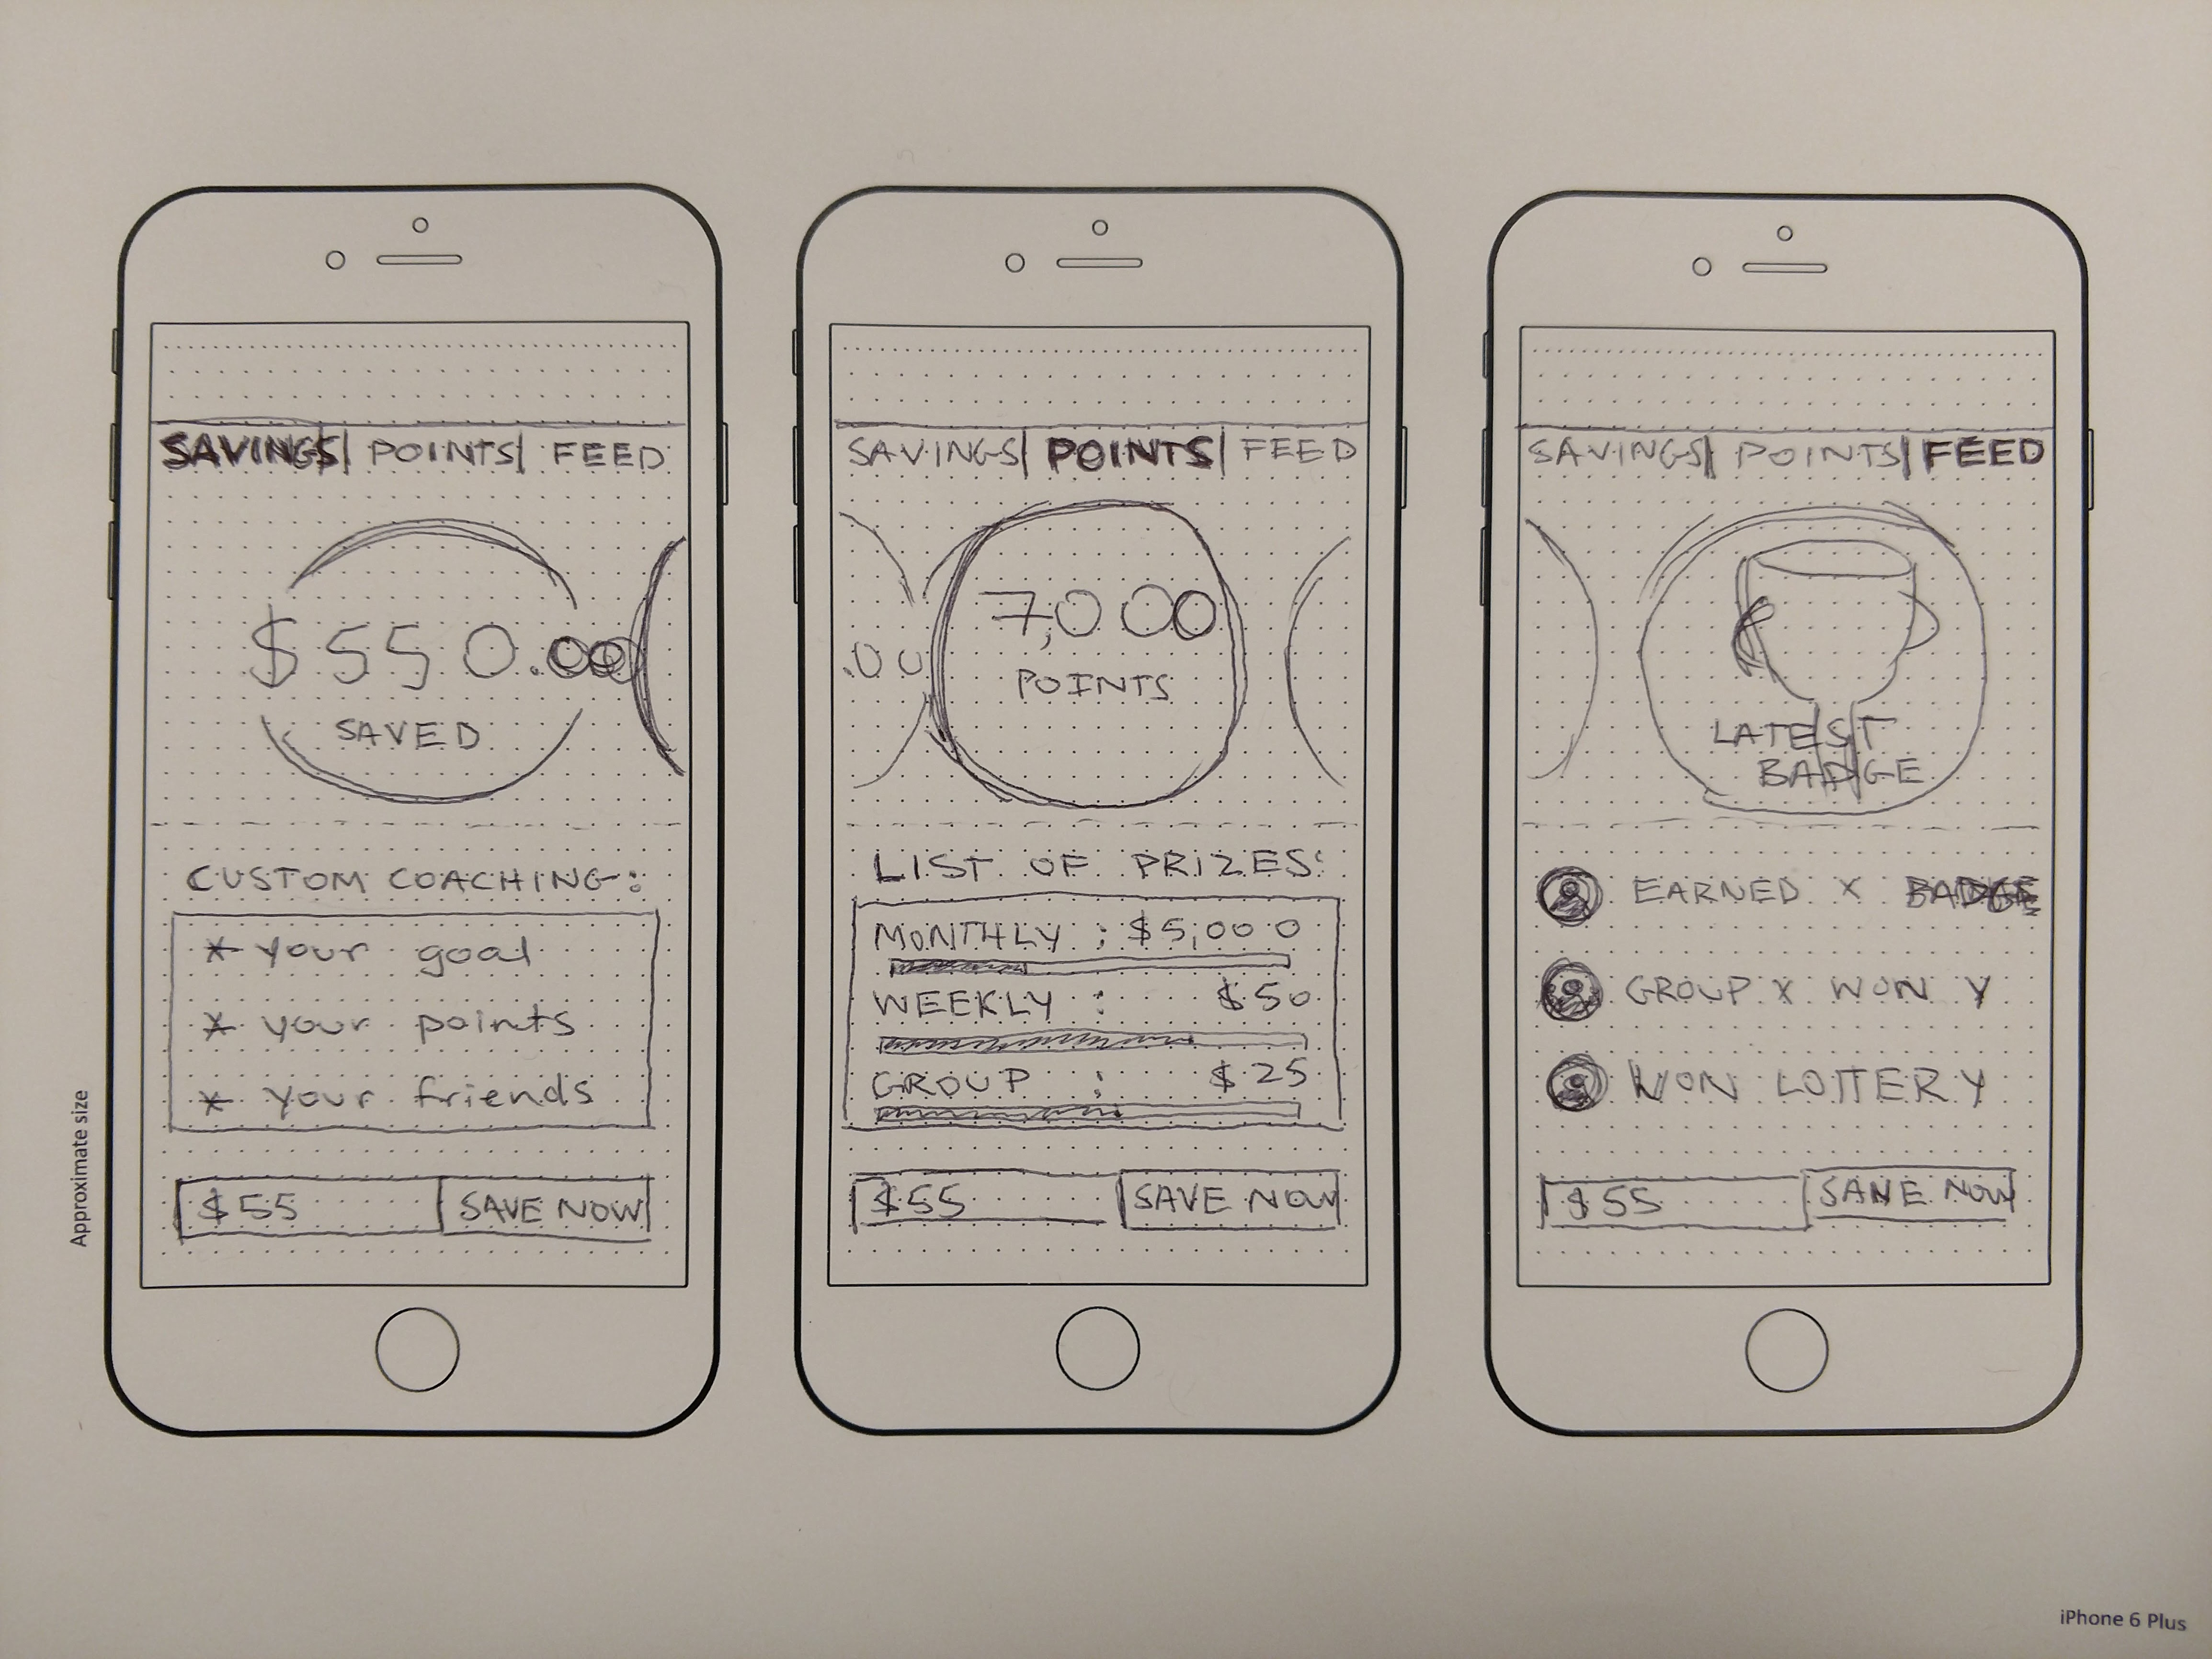 SAVINGS| POINTS| FEED
$550.00
SAVED
CUSTOM COACHING:
* your goal
* your points
* your friends
$55 SAVE NOW
SAVINGS| POINTS| FEED
.00
7,000
POINTS
LIST OF PRIZES:
MONTHLY : $5,000
WEEKLY : $50
GROUP : $25
$55 SAVE NOW
SAVINGS| POINTS| FEED
LATEST
BADGE
EARNED X BADGE
GROUP X WON Y
WON LOTTERY
$55 SAVE NOW
Approximate size
iPhone 6 Plus